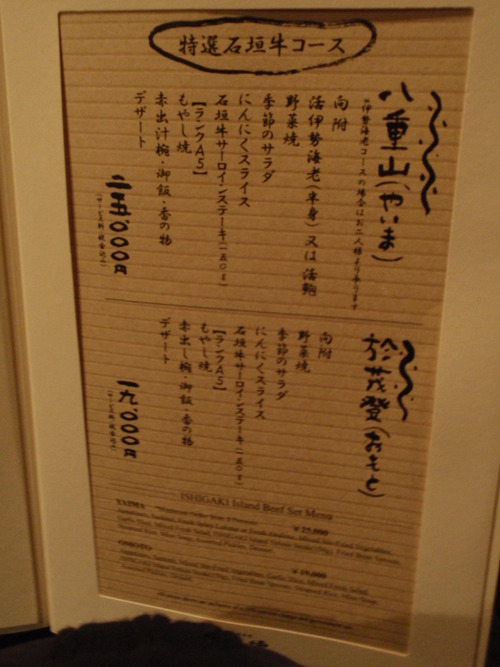 特選石垣牛コース
八重山(やいま)
※伊勢海老コースの場合はお二人様より承ります
向附
活伊勢海老(半身)又は活鮑
野菜焼
季節のサラダ
にんにくスライス
石垣牛サーロインステーキ(一五〇g)
【ランクA5】
もやし焼
赤出汁椀・御飯・香の物
デザート
二五、〇〇〇円
(サービス料・税金込み)
於茂登(おもと)
向附
野菜焼
季節のサラダ
にんにくスライス
石垣牛サーロインステーキ(一五〇g)
【ランクA5】
もやし焼
赤出し椀・御飯・香の物
デザート
一九、〇〇〇円
(サービス料・税金込み)
ISHIGAKI Island Beef Set Menu
YAIMA *Minimum Order from 2 Persons ¥25,000
OMOTO ¥19,000